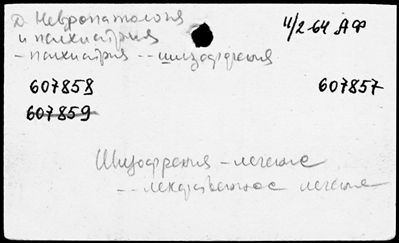 Д. Невропатология
и психиатрия
- психиатрия -- шизофрения
11/2-64 АФ
607858
607857
607859
Шизофрения - лечение
-- лекарственное лечение